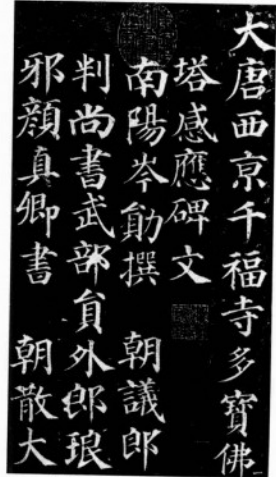 大唐西京千福寺多寶佛
塔感應碑文
南陽岑勛撰 朝議郎
判尚書武部貟外郎琅
邪顏真卿書 朝散大